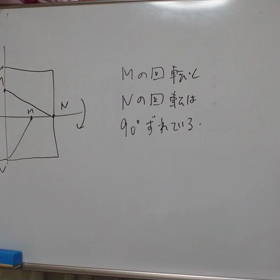 Mの回転と
Nの回転は
90°ずれている.
N
n